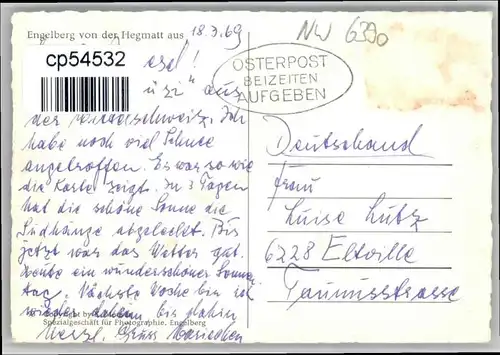 Engelberg von der Hegmatt aus
18.3.69
NW 6390
cp54532
OSTERPOST
BEIZEITEN
AUFGEBEN
aus
der Ich
habe noch viel Schnee
angetroffen. Es war so wie
die Karte zeigt. In 3 Tagen
hat die schöne Sonne die
Südhänge abgeleckt. Bis
jetzt war das Wetter gut.
Heute ein wunderschöner Sonnen
tag. Nächste Woche bin ich
wieder daheim bis dahin
Herzl. Gruss
Spezialgeschäft für Photographie, Engelberg
Deutschland
Frau
Luise Lutz
6228 Eltville
Taunusstrasse